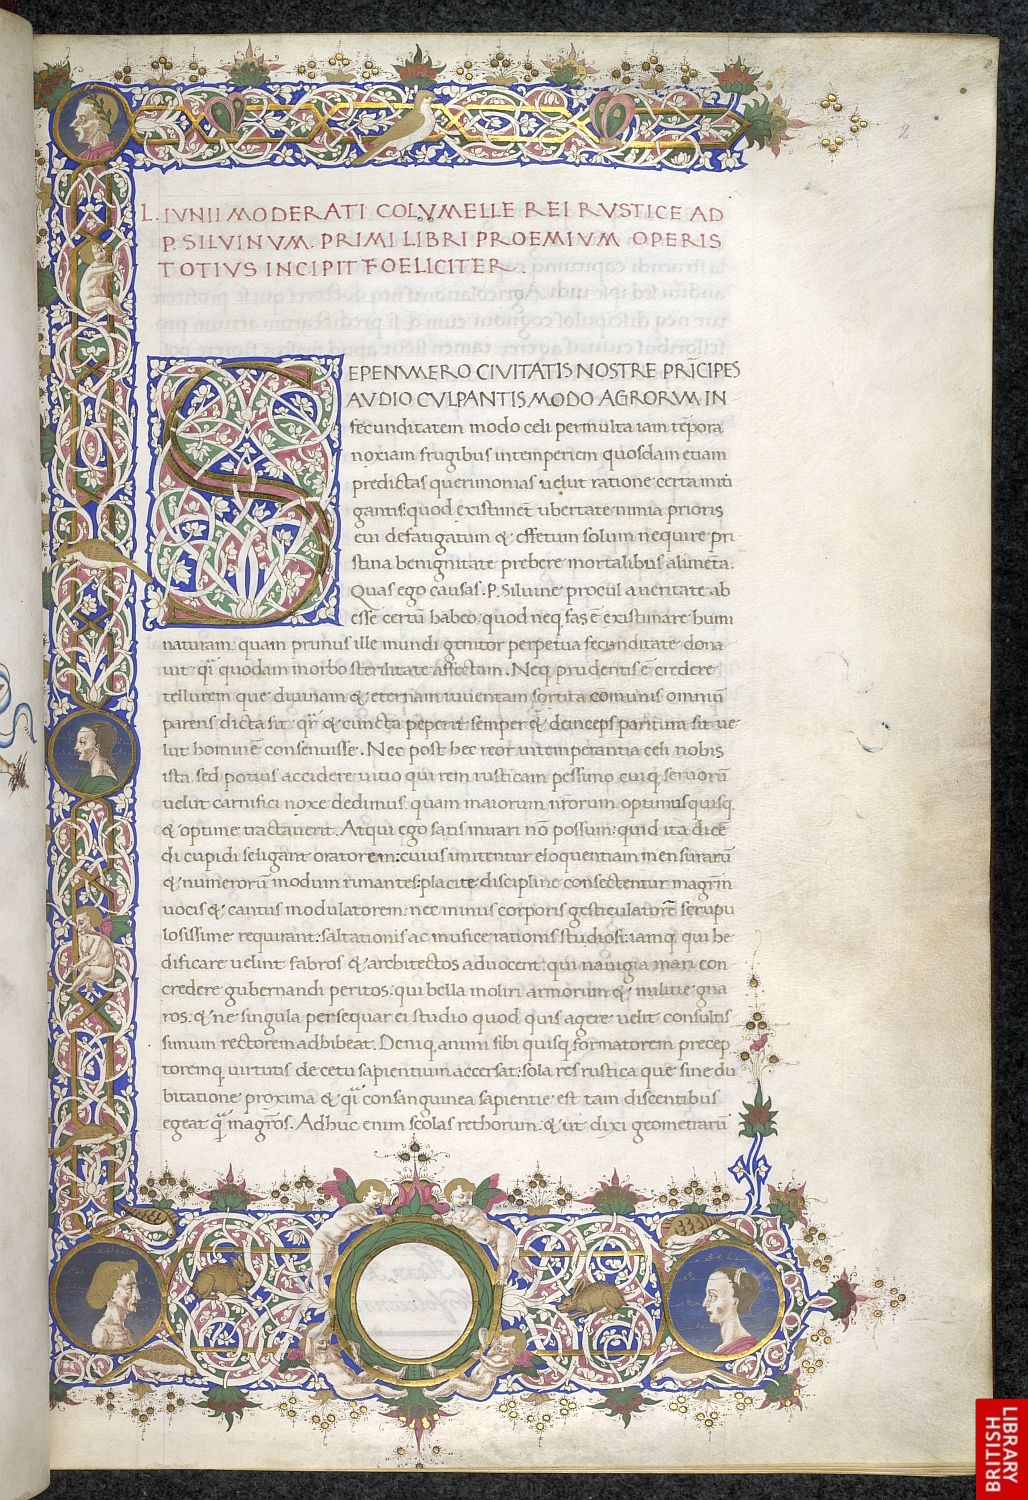 2
L. IVNII MODERATI COLVMELLE REI RVSTICE AD
P. SILVINVM. PRIMI LIBRI PROEMIVM OPERIS
TOTIVS INCIPIT FOELICITER.
SEPENVMERO CIVITATIS NOSTRE PRĪCIPES
AVDIO CVLPANTIS MODO AGRORVM IN
fecunditatem modo celi permulta iam tēpora
noxiam frugibus intemperiem quosdam etiam
predictas querimonias uelut ratione certa miti
gantis: quod existimēt ubertate nimia prioris
eui defatigatum & effetum solum nequire pri
stina benignitate prebere mortalibus alimēta.
Quas ego causas .P. Siluine procul a ueritate ab
esse certū habeo: quod neq; fas ē existimare hum
naturam: quam primus ille mundi genitor perpetua fecunditate dona
uit: quodam morbo sterilitate affectam. Neq; prudentis ē credere
tellurem que diuinam & eternam iuuentam sortita: comunis omniū
parens dicta sit: & cuncta peperit semper & deinceps paritura sit ue
lut hominē consenuisse. Nec post hec reor intemperantia celi nobis
ista sed potius accidere uitio qui rem rusticam pessimo cuiq; seruorū
uelut carnifici noxe dedimus: quam maiorum nr̄orum optimus quisq;
& optime tractauerit. Atqui ego satis mirari nō possum: quid ita dicē
di cupidi seligant oratorem: cuius imitentur eloquentiam: mensurarū
& numerorū modum rimantes: placite discipline consectentur magr̄m
uocis & cantus modulatorem: nec minus corporis gesticulatorē scrupu
losissime requirant: saltationis ac musice rationis studiosi: iamq; qui he
dificare uelint fabros & architectos aduocent: qui nauigia mari con
credere gubernandi peritos: qui bella moliri armorum & militie gna
ros: & ne singula persequar ei studio quod quis agere uelit: consultis
simum rectorem adhibeat. Deniq; animi sibi quisq; formatorem precep
toremq; uirtutis de cetu sapientium accersat: sola res rustica que sine du
bitatione proxima & consanguinea sapientie est tam discentibus
egeat q̄ magr̄os. Adhuc enim scolas rethorum: & ut dixi geometrarū
BRITISH
LIBRARY